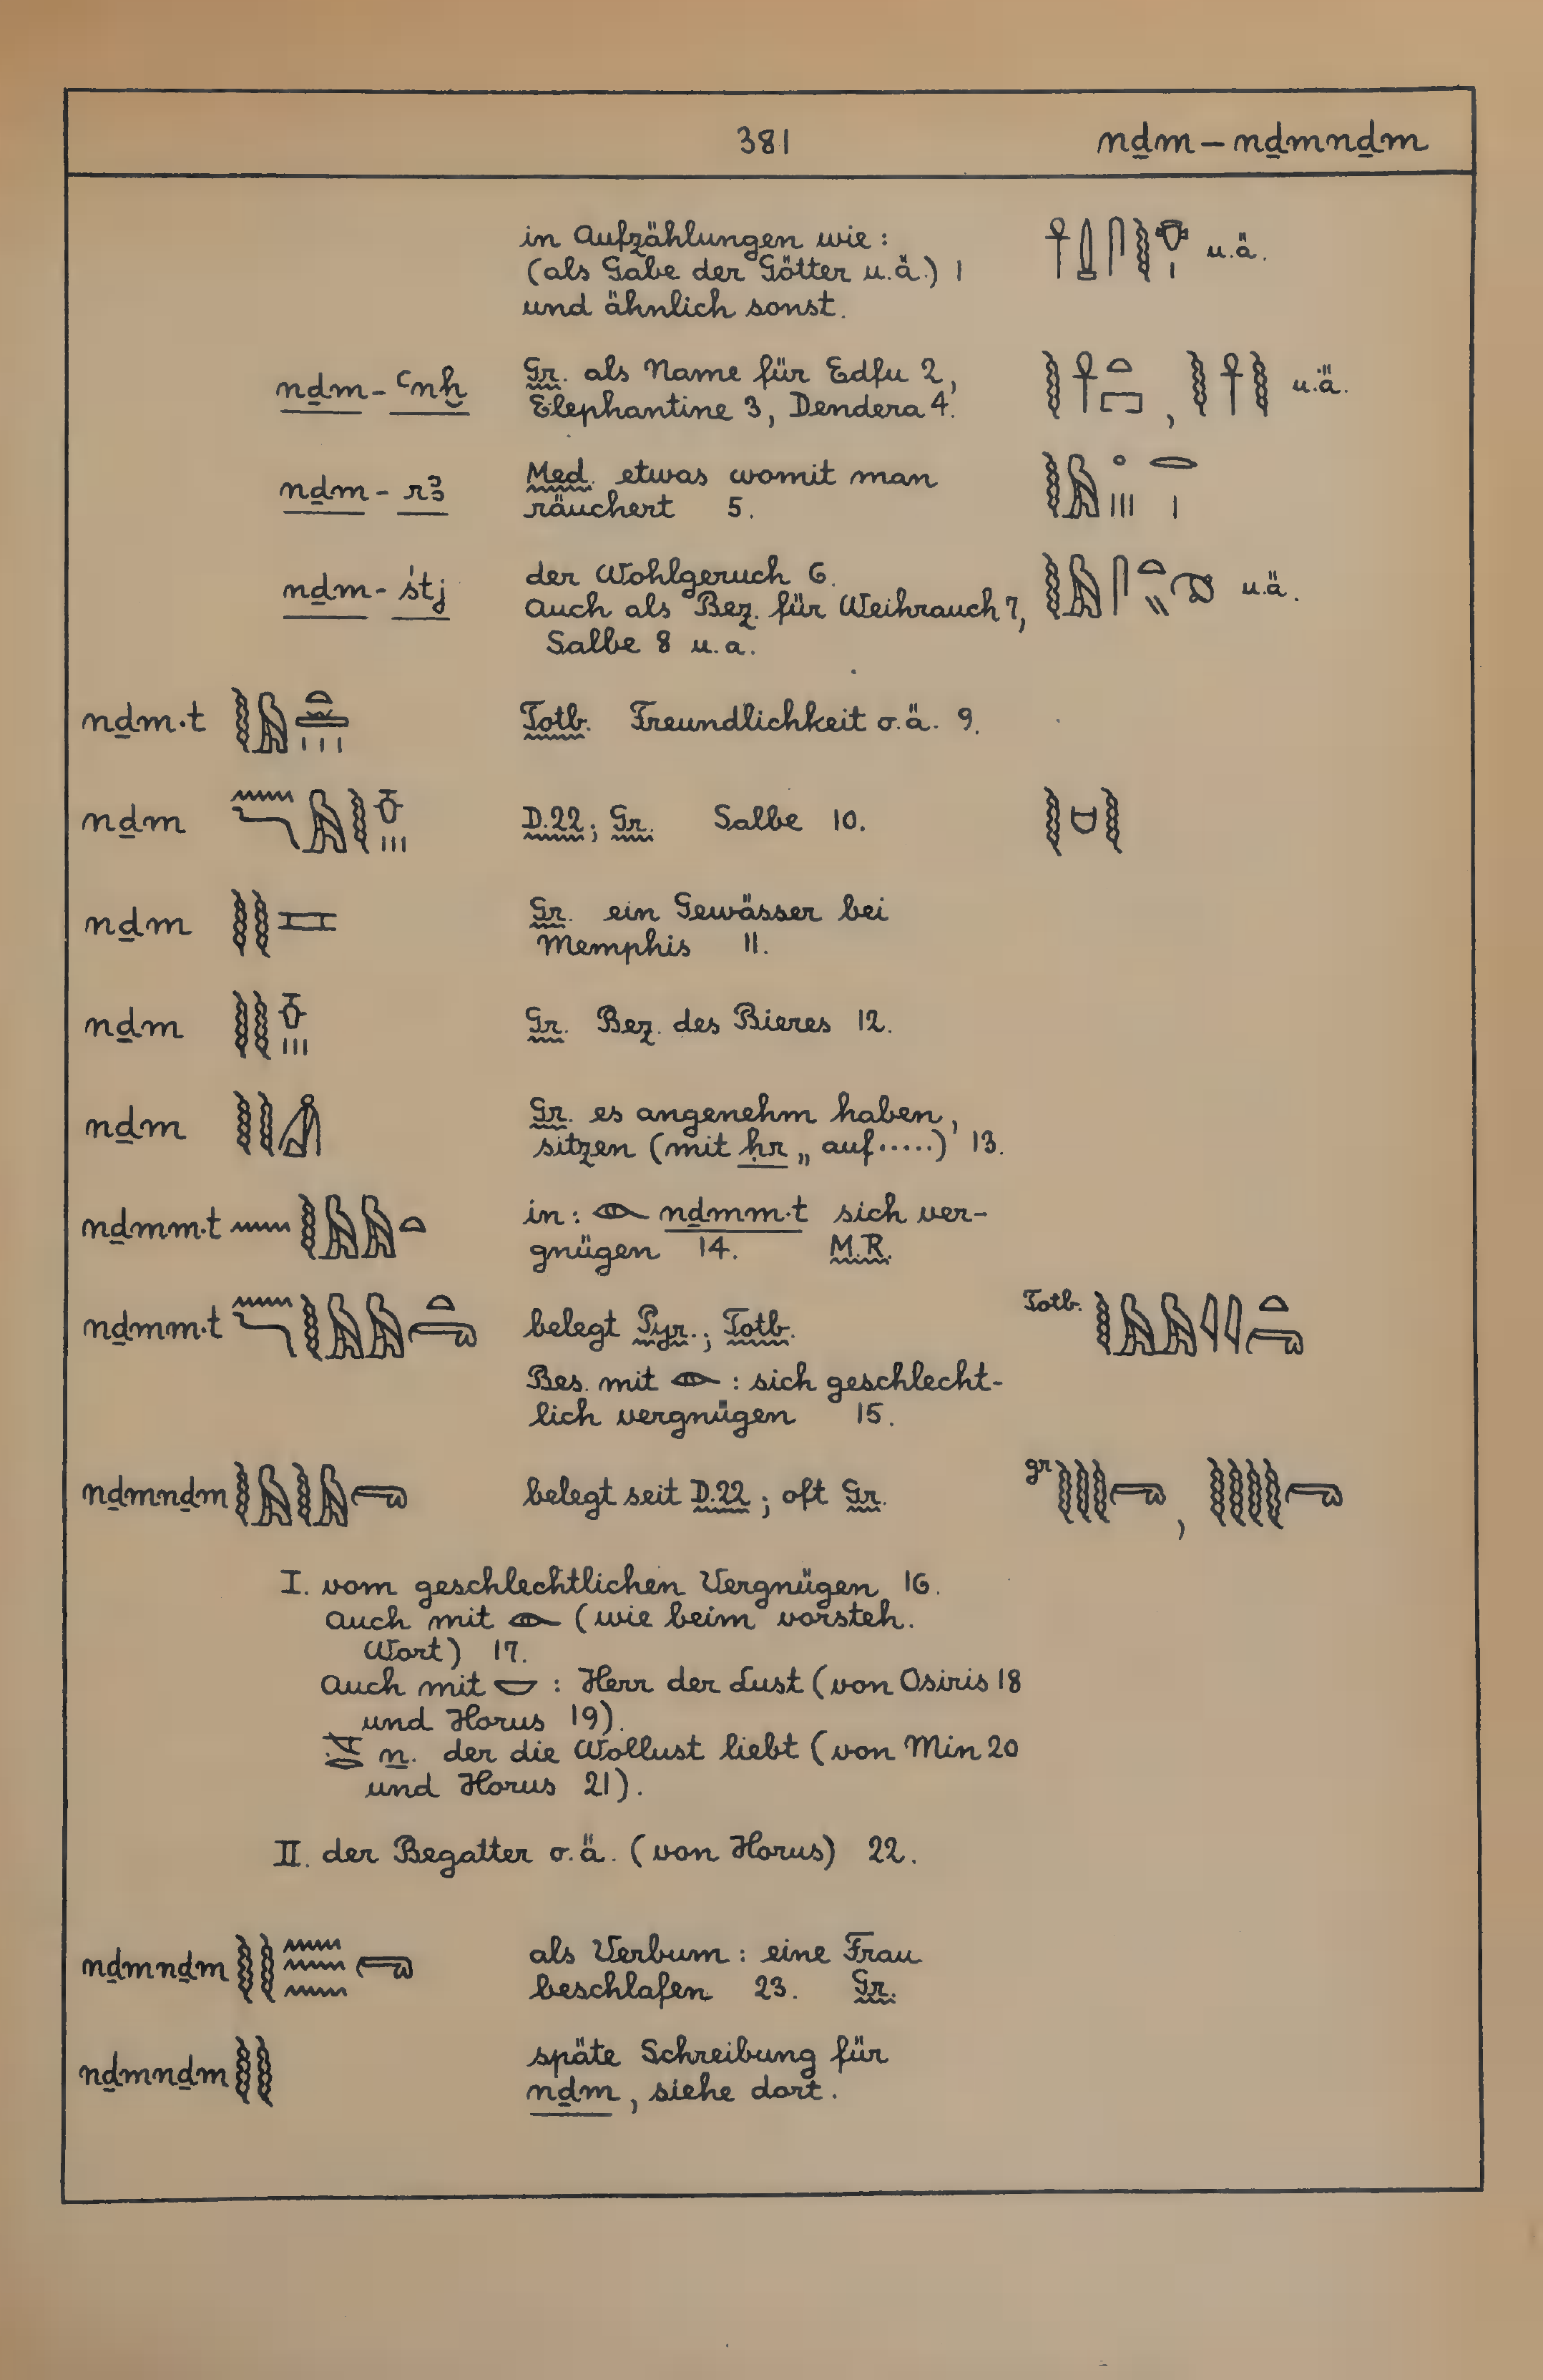 381 nḏm – nḏmnḏm
in Aufzählungen wie : u.ä.
(als Gabe der Götter u.ä.) 1
und ähnlich sonst.
nḏm - ꜥnḫ Gr. als Name für Edfu 2, , u.ä.
Elephantine 3, Dendera 4.
nḏm - rꜣ Med. etwas womit man
räuchert 5.
nḏm - śtj der Wohlgeruch 6. u.ä.
Auch als Bez. für Weihrauch 7,
Salbe 8 u.a.
nḏm.t Totb. Freundlichkeit o.ä. 9.
nḏm D.22; Gr. Salbe 10.
nḏm Gr. ein Gewässer bei
Memphis 11.
nḏm Gr. Bez. des Bieres 12.
nḏm Gr. es angenehm haben,
sitzen (mit ḥr „ auf.....) 13.
nḏmm.t in : nḏmm.t sich ver-
gnügen 14. M.R.
nḏmm.t belegt Pyr.; Totb. Totb.
Bes. mit : sich geschlecht-
lich vergnügen 15.
nḏmnḏm belegt seit D.22 ; oft Gr. gr ,
I. vom geschlechtlichen Vergnügen 16.
Auch mit (wie beim vorsteh.
Wort) 17.
Auch mit : Herr der Lust (von Osiris 18
und Horus 19).
n. der die Wollust liebt (von Min 20
und Horus 21).
II. der Begatter o.ä. (von Horus) 22.
nḏmnḏm als Verbum : eine Frau
beschlafen 23. Gr.
nḏmnḏm späte Schreibung für
nḏm, siehe dort.